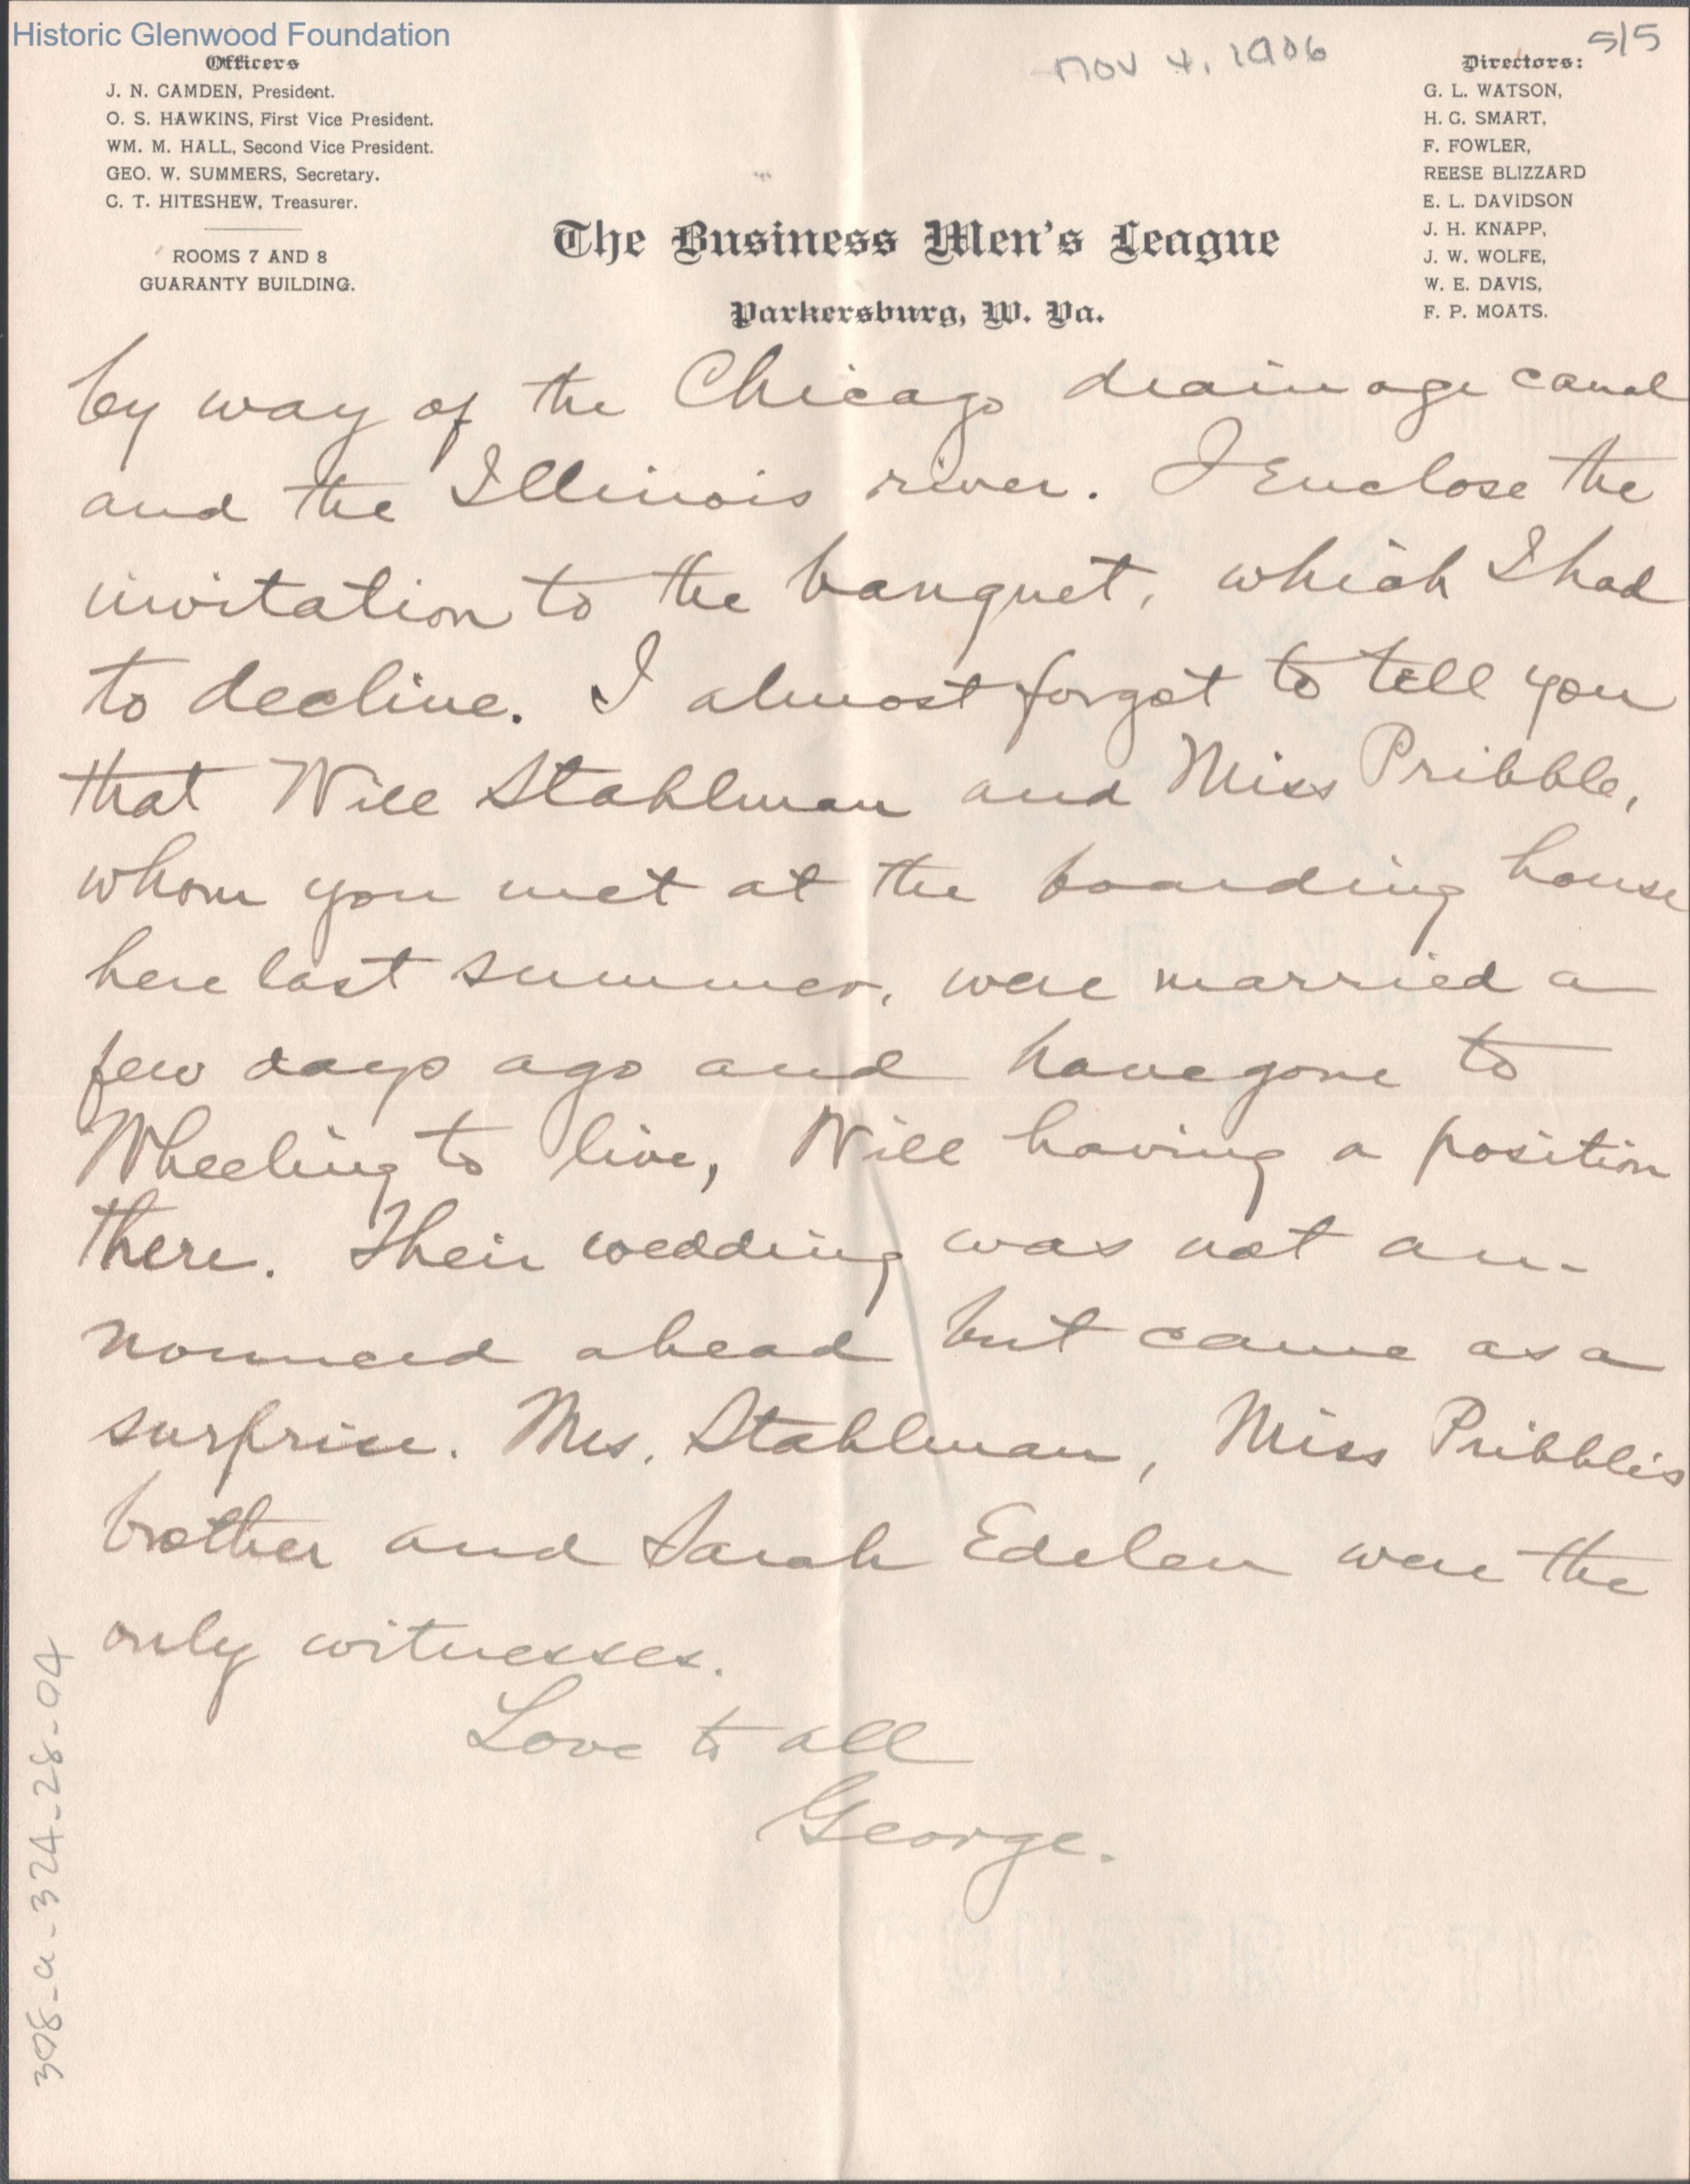 Historic Glenwood Foundation
Nov 4, 1906
5/5
Officers
J. N. CAMDEN, President.
O. S. HAWKINS, First Vice President.
WM. M. HALL, Second Vice President.
GEO. W. SUMMERS, Secretary.
C. T. HITESHEW, Treasurer.
ROOMS 7 AND 8
GUARANTY BUILDING.
Directors:
G. L. WATSON,
H. C. SMART,
F. FOWLER,
REESE BLIZZARD
E. L. DAVIDSON
J. H. KNAPP,
J. W. WOLFE,
W. E. DAVIS,
F. P. MOATS.
The Business Men's League
Parkersburg, W. Va.
by way of the Chicago drainage canal
and the Illinois river. I enclose the
invitation to the banquet, which I had
to decline. I almost forgot to tell you
that Will Stahlman and Miss Pribble,
whom you met at the boarding house
here last summer, were married a
few days ago and have gone to
Wheeling to live, Will having a position
there. Their wedding was not an-
nounced ahead but came as a
surprise. Mrs. Stahlman, Miss Pribble's
brother and Sarah Edelen were the
only witnesses.
Love to all
George.
398-a-324-28-04